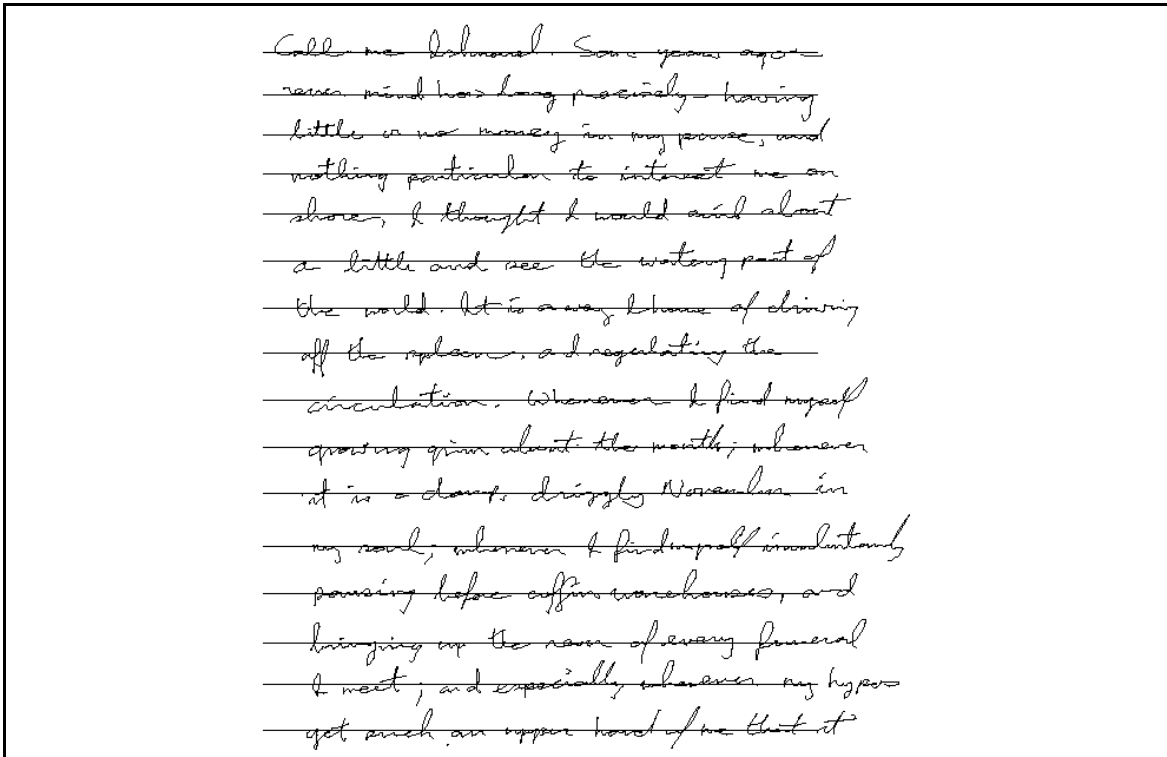 Call me Ishmael. Some years ago-
never mind how long precisely- having
little or no money in my purse, and
nothing particular to interest me on
shore, I thought I would sail about
a little and see the watery part of
the world. It is a way I have of driving
off the spleen, and regulating the
circulation. Whenever I find myself
growing grim about the mouth; whenever
it is a damp, drizzly November in
my soul; whenever I find myself involuntarily
pausing before coffin warehouses, and
bringing up the rear of every funeral
I meet; and especially whenever my hypos
get such an upper hand of me that it